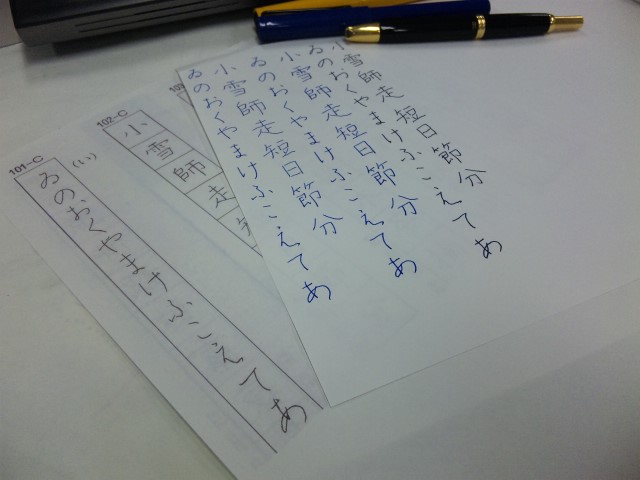 小雪師走短日節分
ゐのおくやまけふこえてあ
小雪師走短日節分
ゐのおくやまけふこえてあ
小雪師走短日節分
ゐのおくやまけふこえてあ
102-C
小雪師走
101-C
ゐのおくやまけふこえてあ